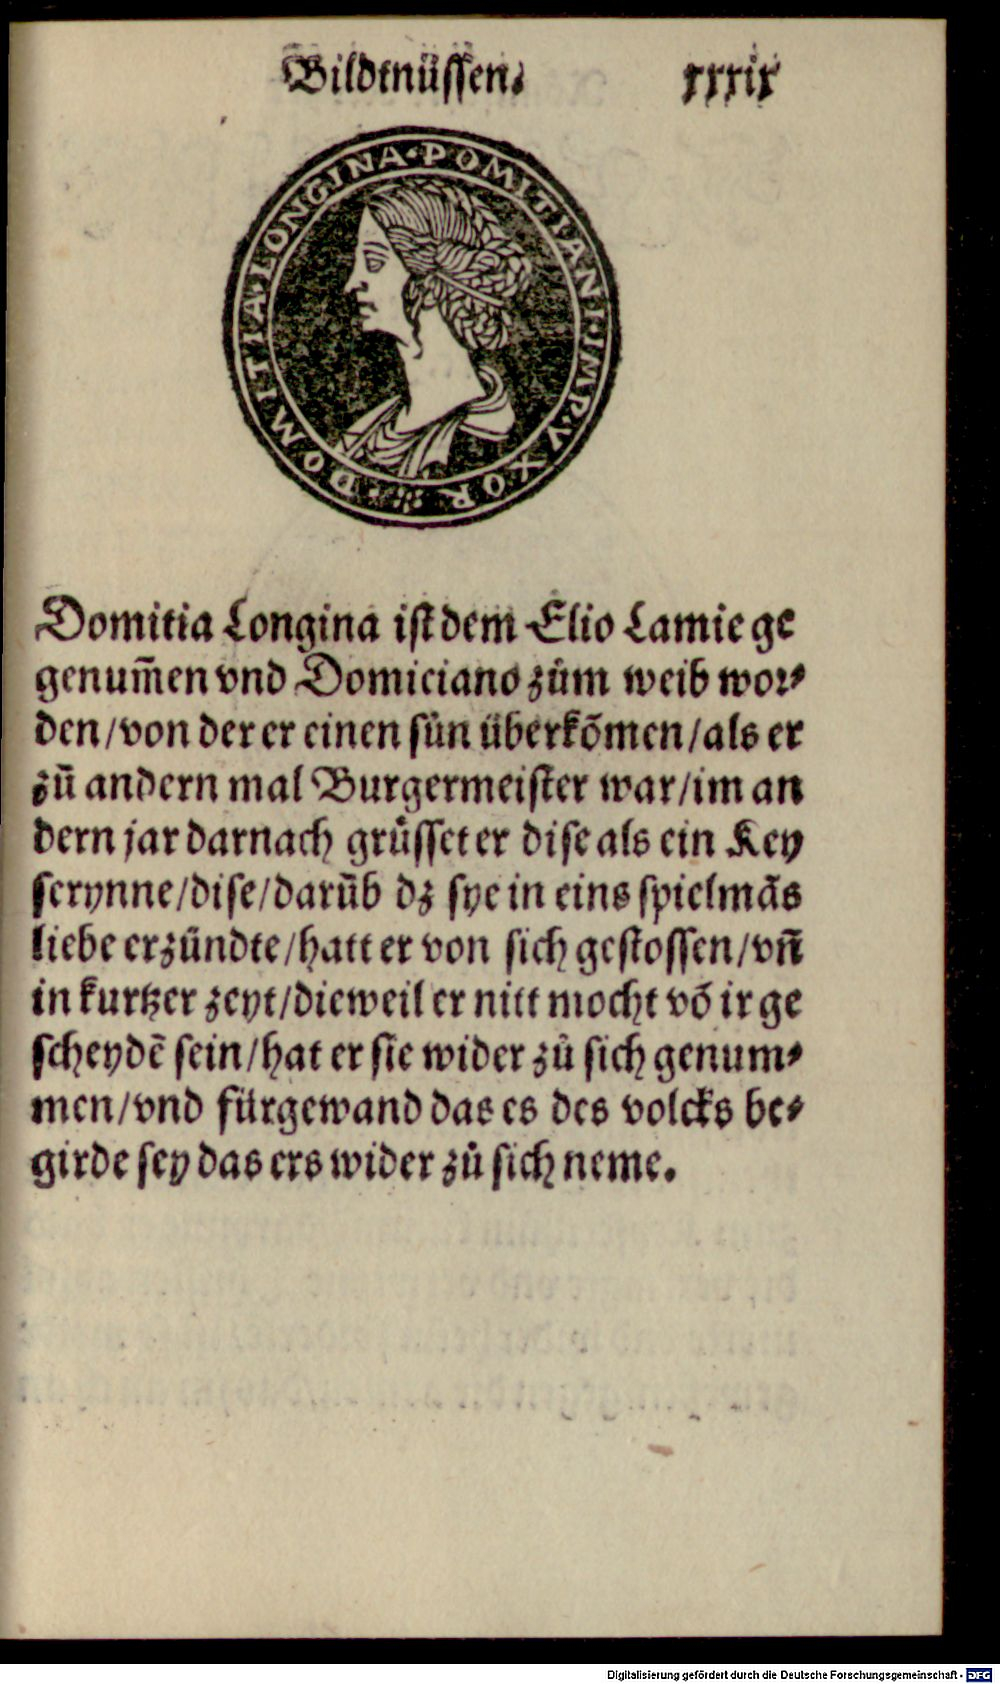 Bildtnüssen. xxxix
DOMITIA·LONGINA·POMITIANI·IMP·VXOR
Domitia Longina ist dem Elio Lamie ge
genum̃en vnd Domiciano zům weib wor⸗
den/von der er einen sůn überkõmen/als er
zů andern mal Burgermeister war/im an
dern jar darnach grůsset er dise als ein Key
serynne/dise/darũb dz sye in eins spielmãs
liebe erzündte/hatt er von sich gestossen/vñ
in kurtzer zeyt/dieweil er nitt mocht võ ir ge
scheydẽ sein/hat er sie wider zů sich genum⸗
men/vnd fürgewand das es des volcks be⸗
girde sey das ers wider zů sich neme.
Digitalisierung gefördert durch die Deutsche Forschungsgemeinschaft - DFG